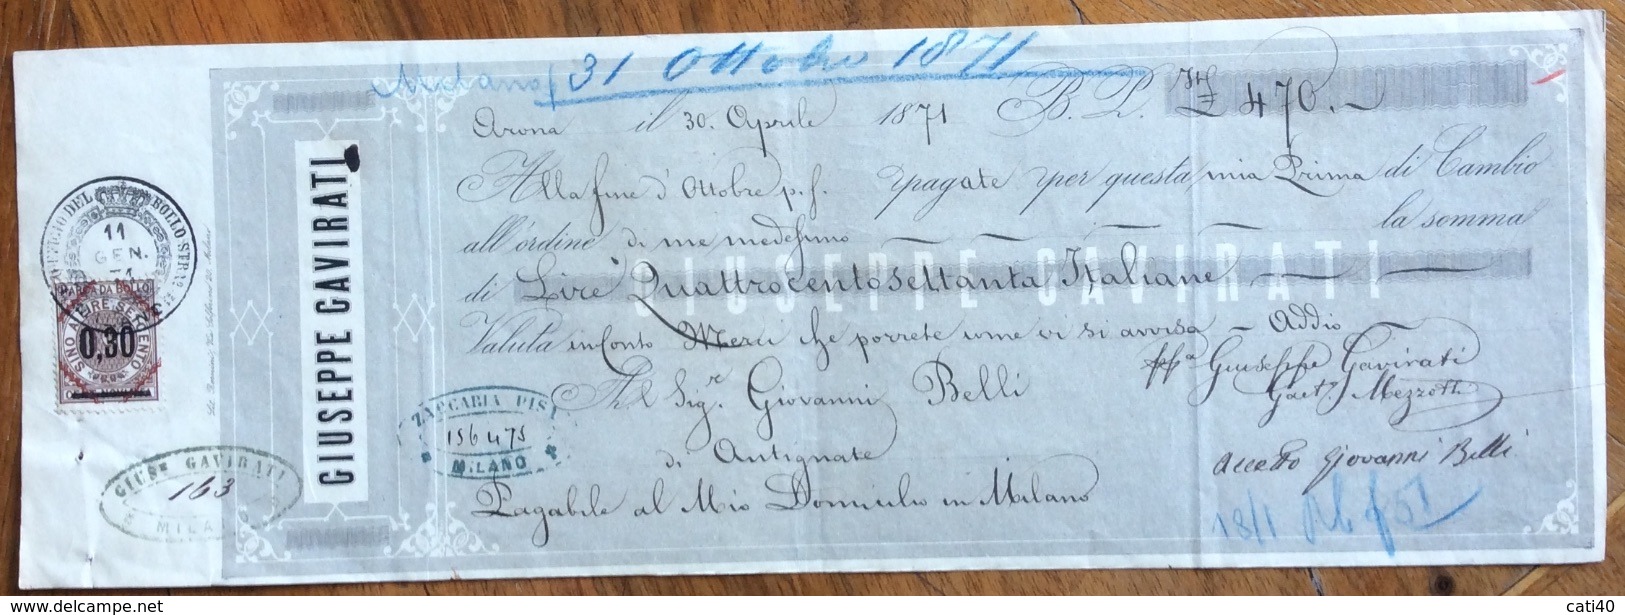 31 Ottobre 1871
Arona il 30. Aprile 1871 B. P. It £ 470.-
Alla fine d'Ottobre p. f. pagate per questa mia Prima di Cambio
all'ordine di me medesimo la somma
di Lire Quattrocentosettanta Italiane
GIUSEPPE GAVIRATI
Valuta in Conto Merci che porrete come vi si avvisa - Addio
ppa Giuseppe Gavirati
Gaet. Mezzotti
Al Sigr. Giovanni Belli
di Antignate
Pagabile al Mio Domicilio in Milano
accetto Giovanni Belli
18/1
GIUSEPPE GAVIRATI
UFFICIO DEL BOLLO STRAO
11
GEN.
71
MARCA DA BOLLO
SINO A LIRE SEICENTO
0,30
GIUSE GAVIRATI
163
MILANO
ZACCARIA PISA
156475
MILANO
cati40